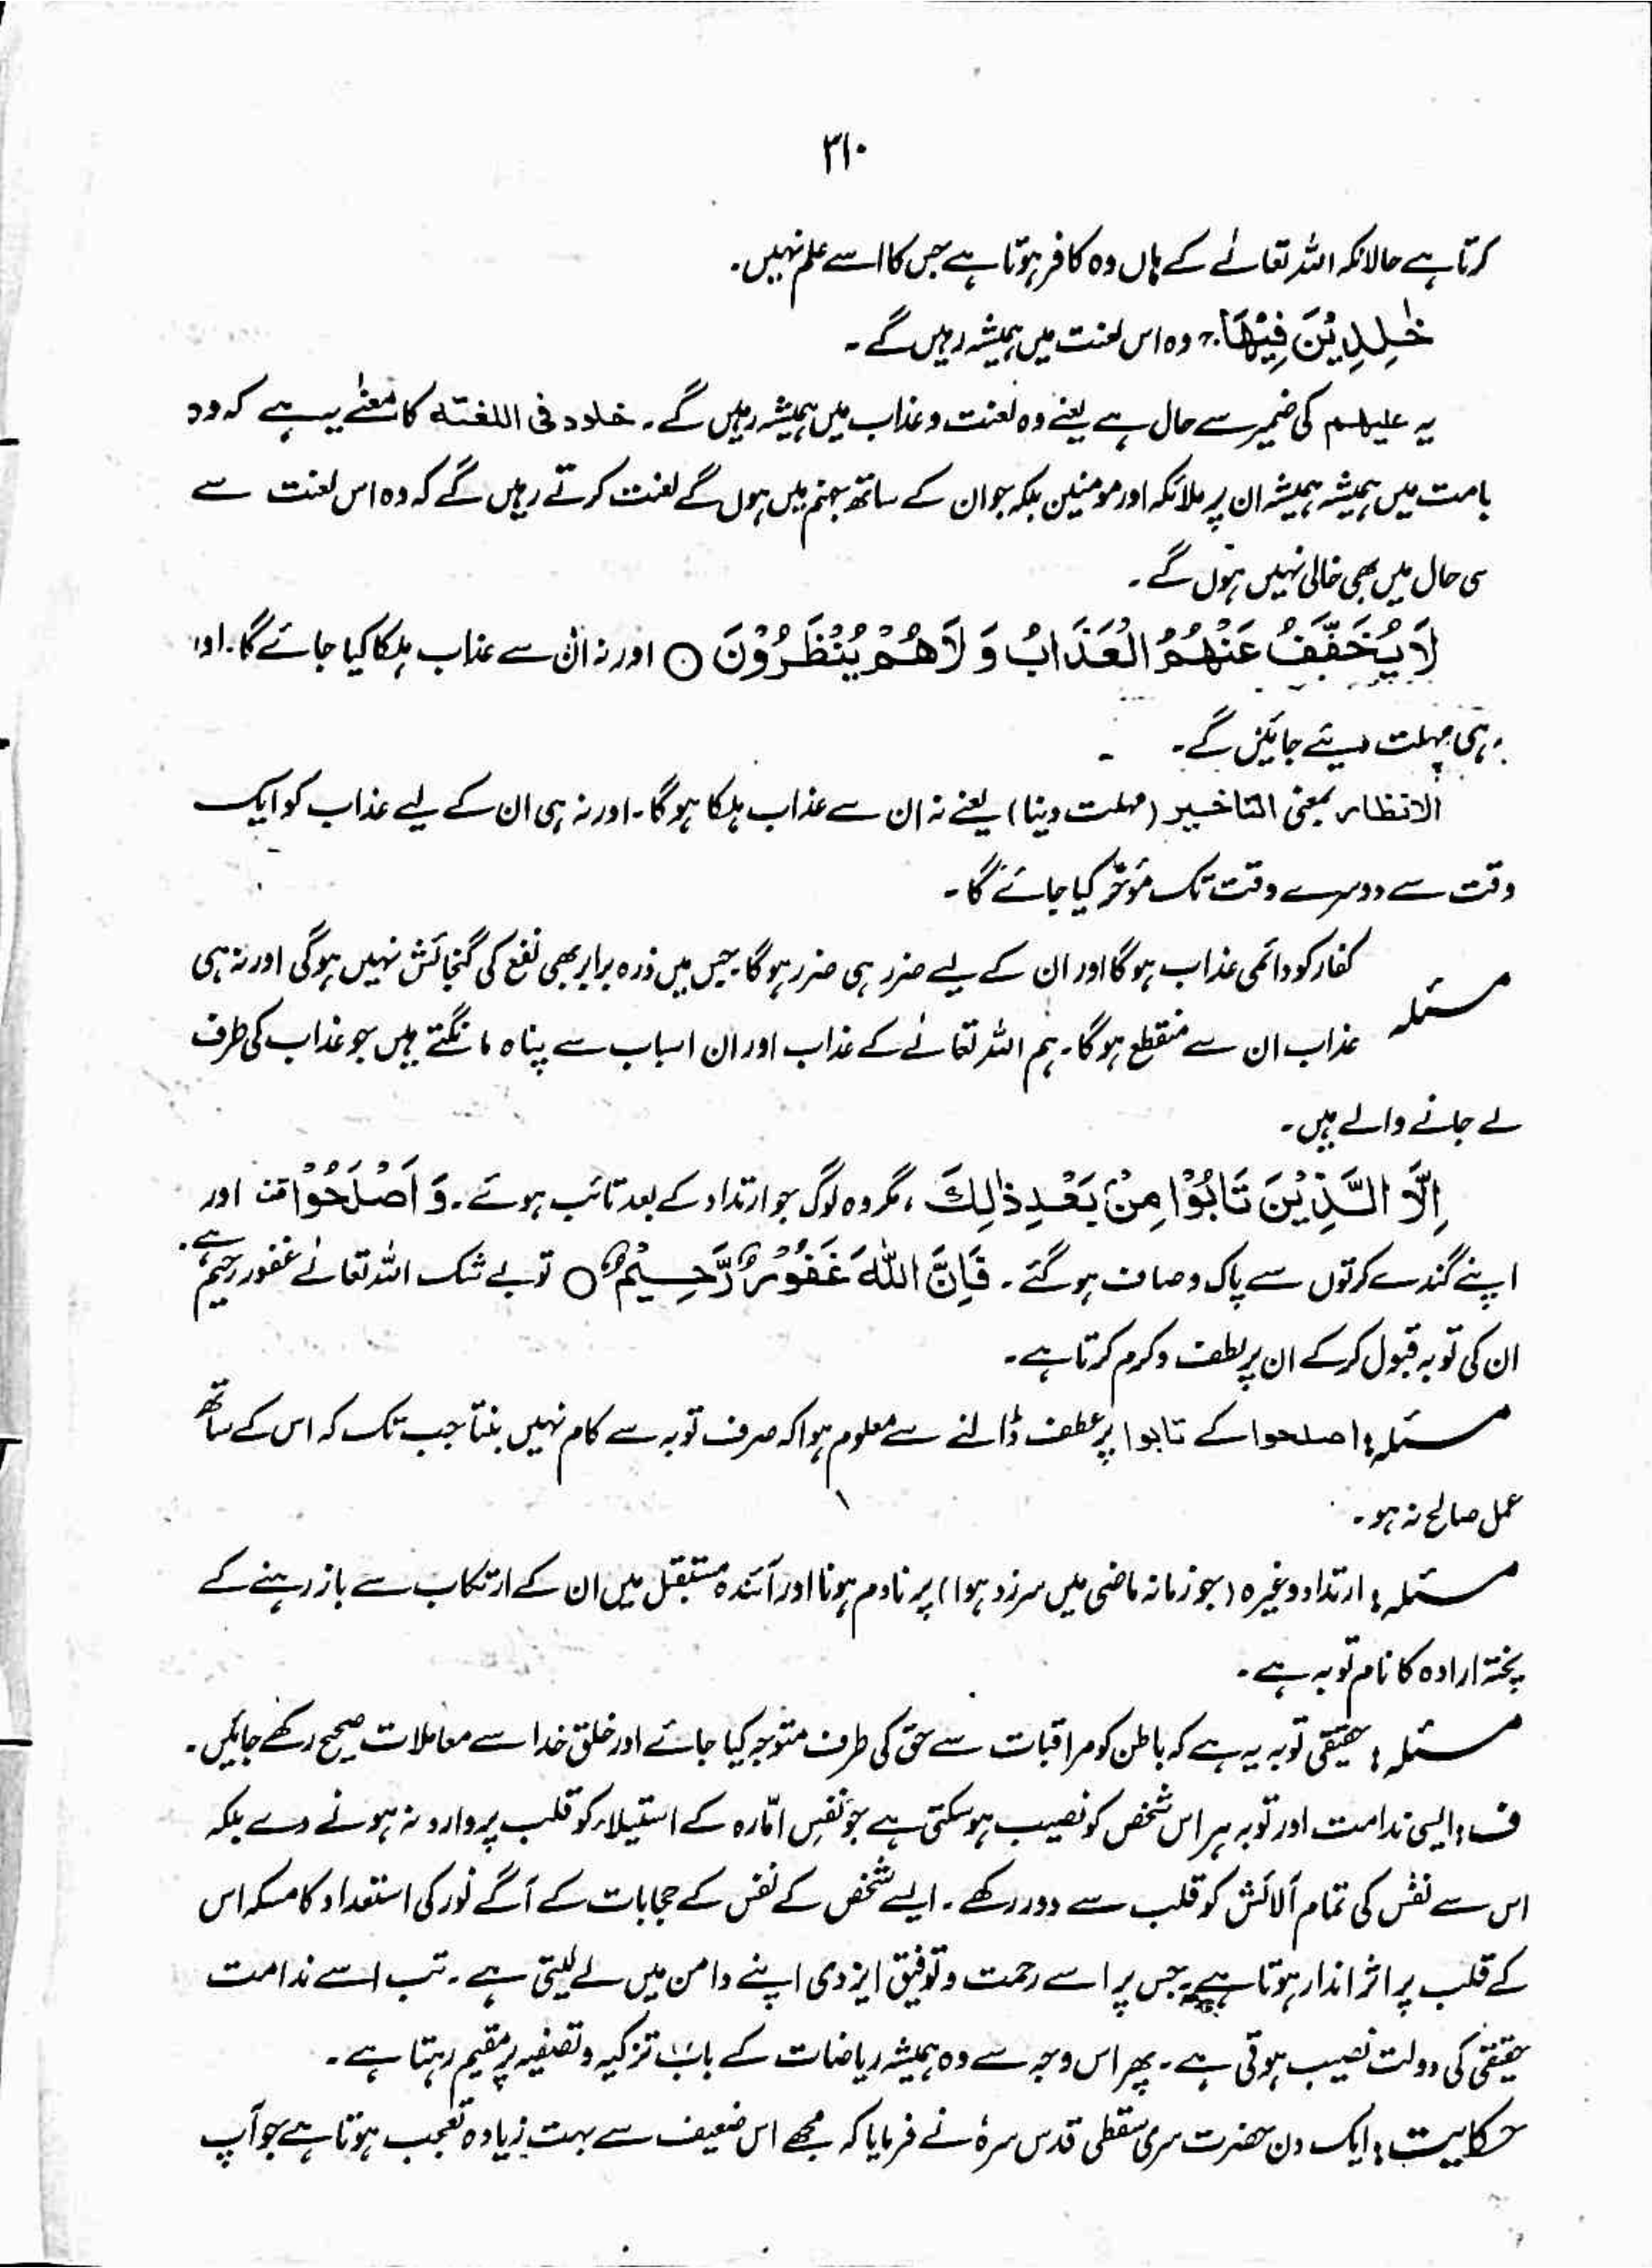 ۳۱۰
کرتا ہے حالانکہ اللہ تعالےٰ کے ہاں وہ کافر ہوتا ہے جس کا اسے علم نہیں۔
خٰلِدِیْنَ فِیْهَا ۔ وہ اس لعنت میں ہمیشہ رہیں گے ۔
یہ علیہم کی ضمیر سے حال ہے یعنے وہ لعنت و عذاب میں ہمیشہ رہیں گے ۔ خلود فی اللغتہ کا معنےٰ یہ ہے کہ وہ
یامت میں ہمیشہ ہمیشہ ان پر ملائکہ اور مومنین بلکہ جو ان کے ساتھ جہنم میں ہوں گے لعنت کرتے رہیں گے کہ وہ اس لعنت سے
سی حال میں بھی خالی نہیں ہوں گے ۔
لَا یُخَفَّفُ عَنْهُمُ الْعَذَابُ وَ لَا هُمْ یُنْظَرُوْنَ ○ اور نہ ان سے عذاب ہلکا کیا جائے گا ۔ اور
نہ ہی مہلت دیئے جائیں گے ۔
الانتظار بمعنی التاخیر (مہلت دینا) یعنے نہ ان سے عذاب ہلکا ہوگا ۔ اور نہ ہی ان کے لیے عذاب کو ایک
وقت سے دوسرے وقت تک مؤخر کیا جائے گا ۔
مسئلہ کفار کو دائمی عذاب ہوگا اور ان کے لیے ضرر ہی ضرر ہوگا۔ جس میں ذرہ برابر بھی نفع کی گنجائش نہیں ہوگی اور نہ ہی
عذاب ان سے منقطع ہوگا۔ ہم اللہ تعالےٰ کے عذاب اور ان اسباب سے پناہ مانگتے ہیں جو عذاب کی طرف
لے جانے والے ہیں۔
اِلَّا الَّذِیْنَ تَابُوْا مِنْۢ بَعْدِ ذٰلِكَ ، مگر وہ لوگ جو ارتداد کے بعد تائب ہوئے ۔ وَ اَصْلَحُوْا قف اور
اپنے گندے کرتوں سے پاک و صاف ہو گئے ۔ فَاِنَّ اللّٰهَ غَفُوْرٌ رَّحِیْمٌ ○ تو بے شک اللہ تعالےٰ غفور رحیم ہے۔
ان کی توبہ قبول کرکے ان پر لطف و کرم کرتا ہے۔
مسئلہ : اصلحوا کے تابوا پر عطف ڈالنے سے معلوم ہوا کہ صرف توبہ سے کام نہیں بنتا جب تک کہ اس کے ساتھ
عمل صالح نہ ہو ۔
مسئلہ : ارتداد وغیرہ (جو زمانہ ماضی میں سرزد ہوا) پر نادم ہونا اور آئندہ مستقبل میں ان کے ارتکاب سے باز رہنے کے
پختہ ارادہ کا نام توبہ ہے ۔
مسئلہ : حقیقی توبہ یہ ہے کہ باطن کو مراقبات سے حق کی طرف متوجہ کیا جائے اور خلق خدا سے معاملات صحیح رکھے جائیں ۔
ف : ایسی ندامت اور توبہ ہر اس شخص کو نصیب ہو سکتی ہے جو نفسِ امّارہ کے استیلاء کو قلب پر وارد نہ ہونے دے بلکہ
اس سے نفس کی تمام آلائش کو قلب سے دور رکھے ۔ ایسے شخص کے نفس کے حجابات کے آگے نور کی استعداد کا مسکہ اس
کے قلب پر اثر انداز ہوتا ہے۔ جس پر اسے رحمت و توفیق ایزدی اپنے دامن میں لے لیتی ہے ۔ تب اسے ندامت
حقیقی کی دولت نصیب ہوتی ہے ۔ پھر اس وجہ سے وہ ہمیشہ ریاضات کے باب تزکیہ و تصفیہ پر مقیم رہتا ہے ۔
حکایت : ایک دن حضرت سری سقطی قدس سرہٗ نے فرمایا کہ مجھے اس ضعیف سے بہت زیادہ تعجب ہوتا ہے جو آپ